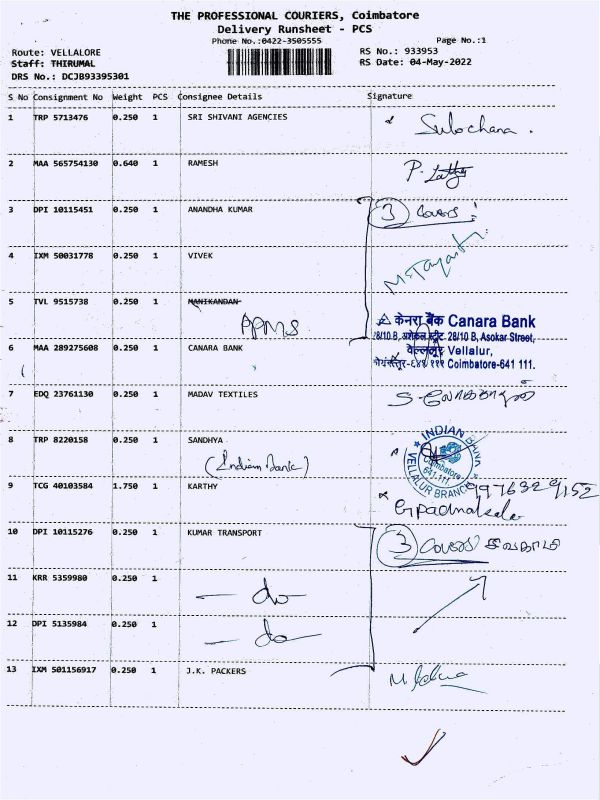 THE PROFESSIONAL COURIERS, Coimbatore
Delivery Runsheet - PCS
Phone No.:0422-3505555
Page No.:1
Route: VELLALORE
RS No.: 933953
Staff: THIRUMAL
RS Date: 04-May-2022
DRS No.: DCJB93395301
S No Consignment No Weight PCS Consignee Details Signature
1 TRP 5713476 0.250 1 SRI SHIVANI AGENCIES Sulochana .
2 MAA 565754130 0.640 1 RAMESH P.
3 DPI 10115451 0.250 1 ANANDHA KUMAR 3
4 IXM 50031778 0.250 1 VIVEK
5 TVL 9515738 0.250 1 MANIKANDAN
PPMS
केनरा बैंक Canara Bank
28/10 B, अशोकन स्ट्रीट 28/10 B, Asokar Street,
6 MAA 289275608 0.250 1 CANARA BANK
वेल्ललूर Vellalur,
कोयंबत्तूर-६४१ १११ Coimbatore-641 111.
7 EDQ 23761130 0.250 1 MADAV TEXTILES
8 TRP 8220158 0.250 1 SANDHYA
(Indian Bank)
INDIAN BANK
Coimbatore
641.111
VELLALUR BRANCH
9 TCG 40103584 1.750 1 KARTHY
10 DPI 10115276 0.250 1 KUMAR TRANSPORT 3
11 KRR 5359980 0.250 1
- do
12 DPI 5135984 0.250 1
- do
13 IXM 501156917 0.250 1 J.K. PACKERS